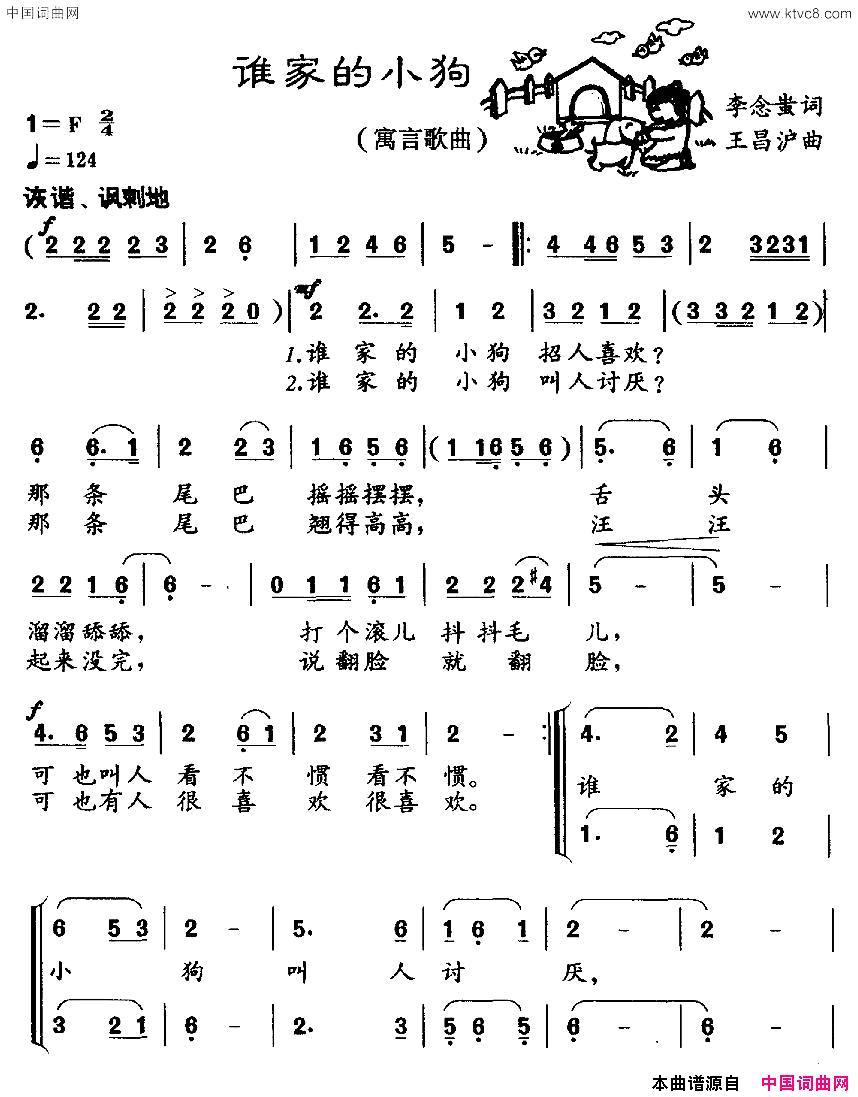 中国词曲网
www.ktvc8.com
谁家的小狗
(寓言歌曲)
李念蚩词
王昌沪曲
1=F 2/4
♩=124
诙谐、讽刺地
f
( 2 2 2 2 3 | 2 6 | 1 2 4 6 | 5 - |: 4 4 6 5 3 | 2 3 2 3 1 |
mf
2. 2 2 | 2 2 2 0 ) | 2 2. 2 | 1 2 | 3 2 1 2 | ( 3 3 2 1 2 ) |
1.谁家的小狗招人喜欢?
2.谁家的小狗叫人讨厌?
6 6. 1 | 2 2 3 | 1 6 5 6 | ( 1 1 6 5 6 ) | 5. 6 | 1 6 |
那条尾巴摇摇摆摆, 舌头
那条尾巴翘得高高, 汪汪
2 2 1 6 | 6 - | 0 1 1 6 1 | 2 2 2 #4 | 5 - | 5 - |
溜溜舔舔, 打个滚儿抖抖毛儿,
起来没完, 说翻脸就翻脸,
f
4. 6 5 3 | 2 6 1 | 2 3 1 | 2 - :| 4. 2 | 4 5 |
可也叫人看不惯看不惯。 谁家的
可也有人很喜欢很喜欢。
1. 6 | 1 2 |
6 5 3 | 2 - | 5. 6 | 1 6 1 | 2 - | 2 - |
小狗叫人讨厌,
3 2 1 | 6 - | 2. 3 | 5 6 5 | 6 - | 6 - |
本曲谱源自 中国词曲网